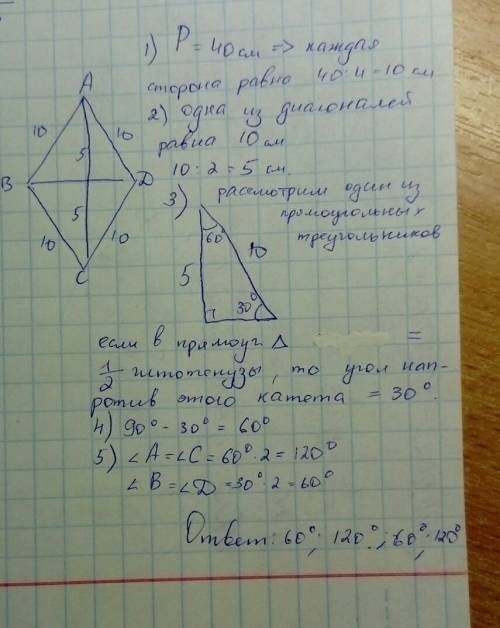 1) P = 40 см => каждая
сторона равна 40:4=10 см
2) одна из диагоналей
равна 10 см
10:2=5 см.
3) рассмотрим один из
прямоугольных
треугольников
A
10 10
5
B D
5
10 10
C
60°
10
5
30°
если в прямоуг. Δ =
1/2 гипотенузы, то угол нап-
ротив этого катета = 30°.
4) 90° - 30° = 60°
5) ∠A=∠C=60°·2=120°
∠B=∠D=30°·2=60°
Ответ: 60°; 120°; 60°; 120°